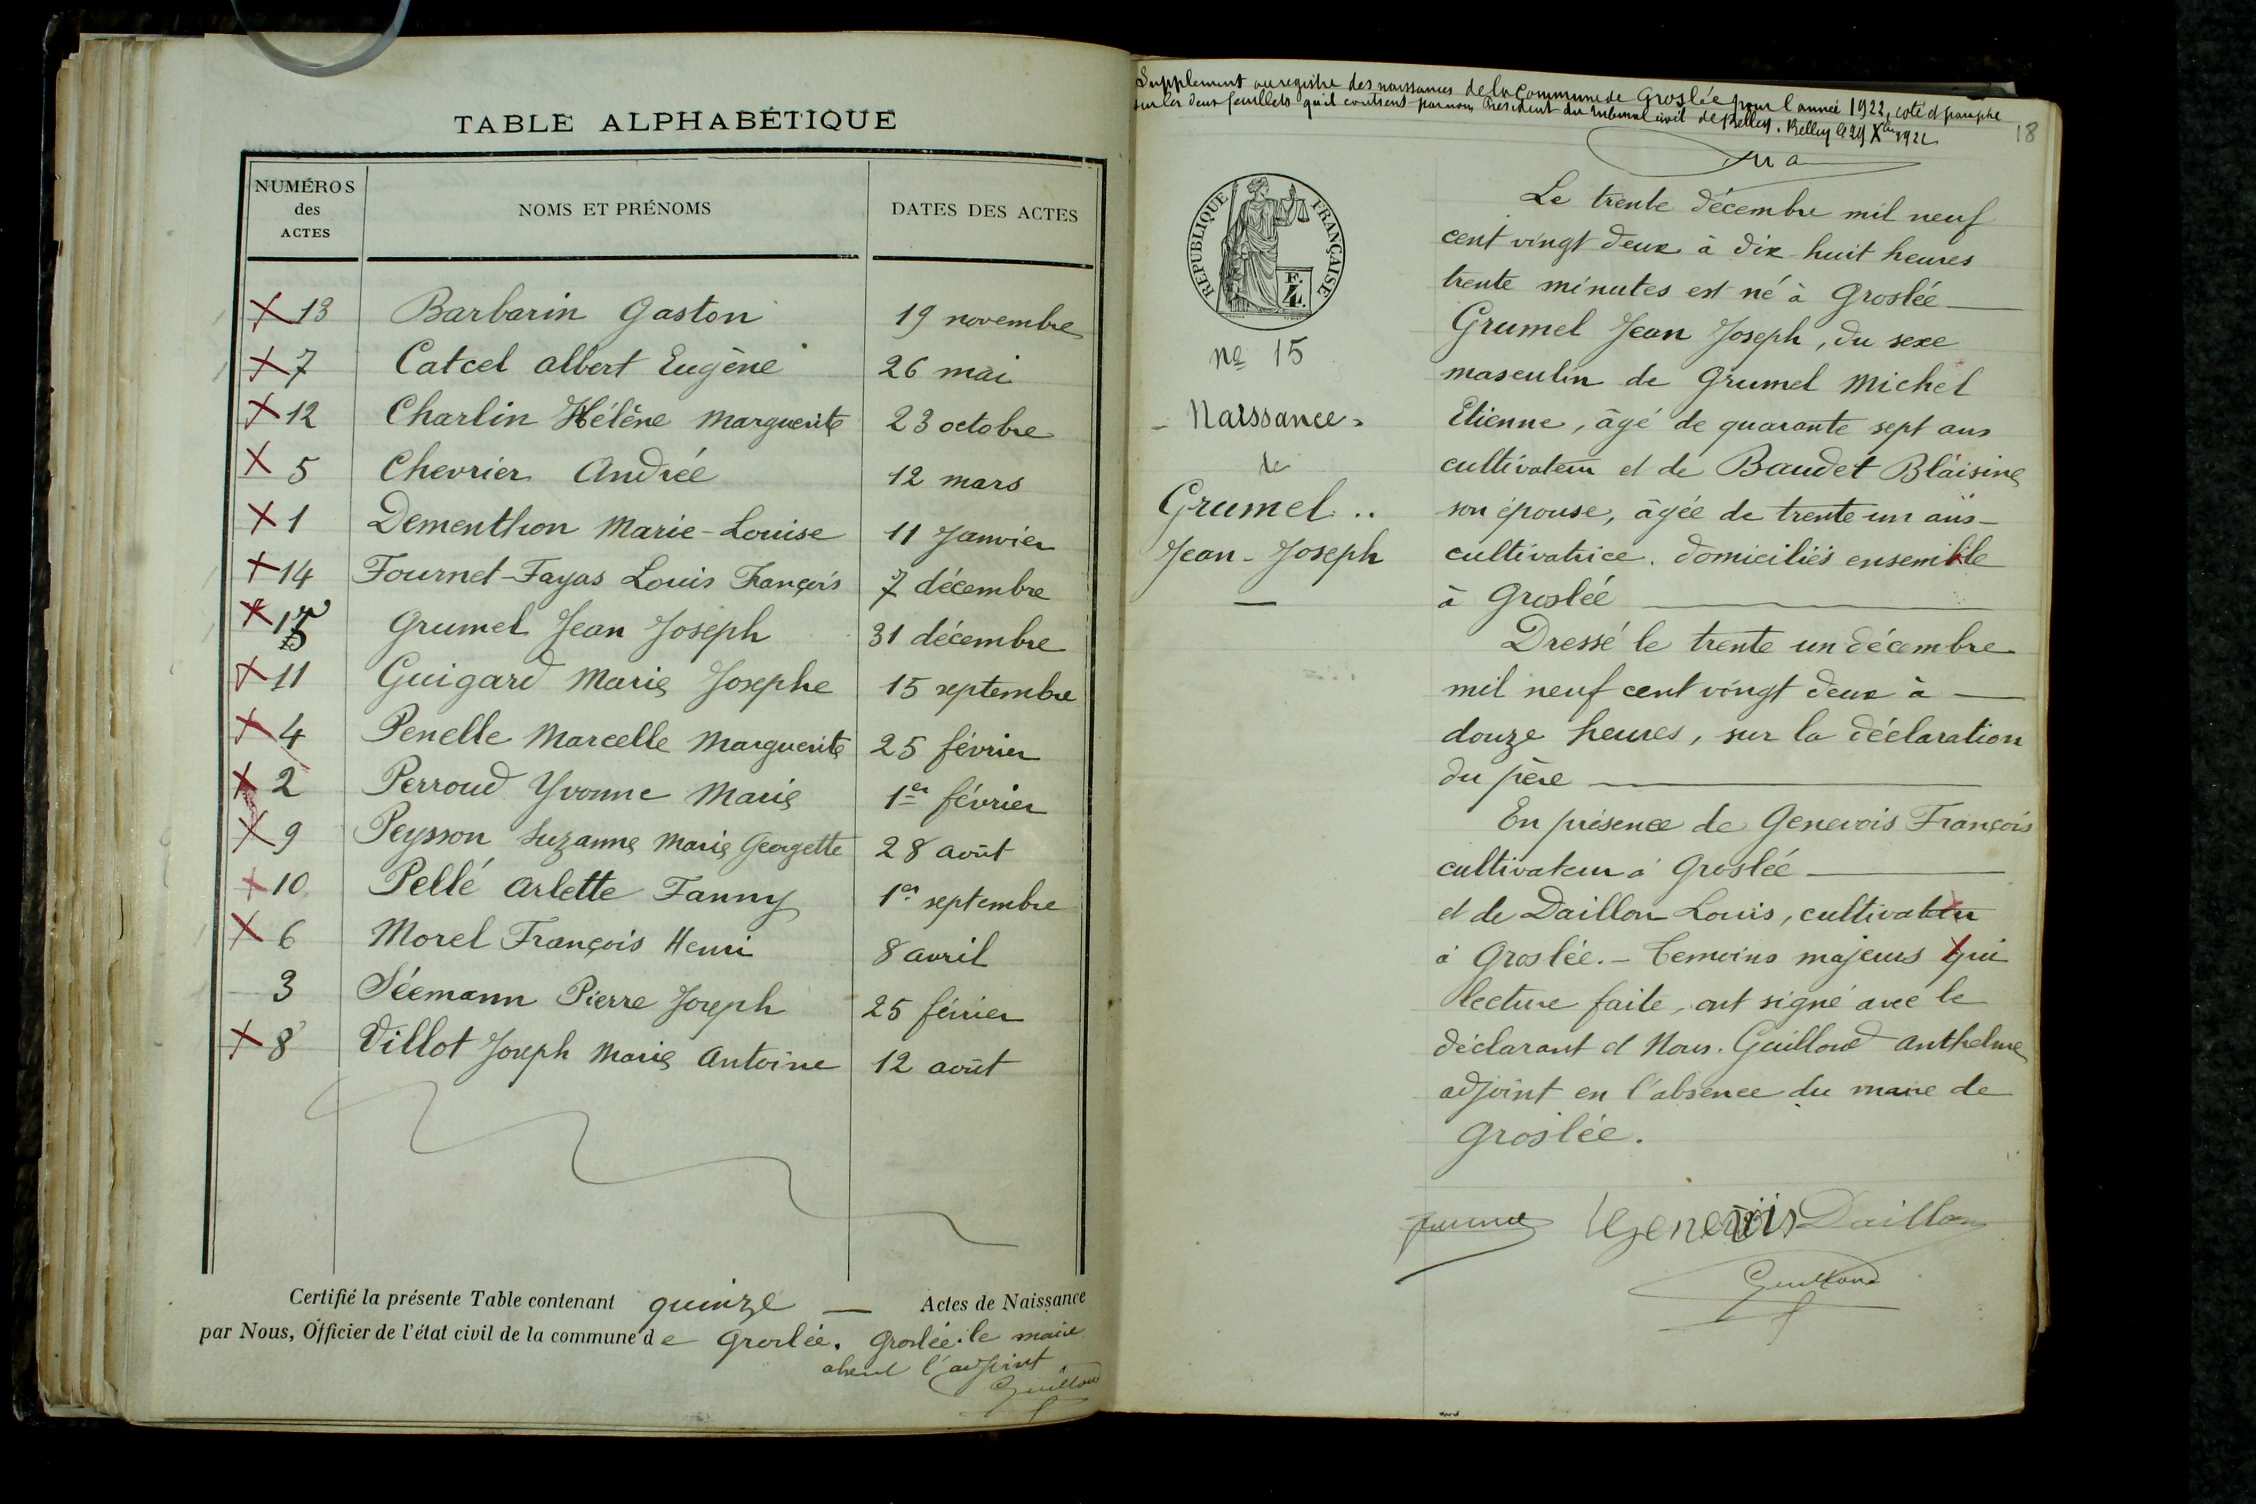 TABLE ALPHABÉTIQUE
NUMÉROS des ACTES NOMS ET PRÉNOMS DATES DES ACTES
13 Barbarin Gaston 19 novembre
7 Catcel Albert Eugène 26 mai
12 Charlin Hélène Marguerite 23 octobre
5 Chevrier Andrée 12 mars
1 Dementhon Marie-Louise 11 Janvier
14 Fournet-Fayas Louis François 7 décembre
15 Grumel Jean Joseph 31 décembre
11 Guigard Marie Josephe 15 septembre
4 Penelle Marcelle Marguerite 25 février
2 Perroud Yvonne Marie 1er février
9 Peysson Suzanne Marie Georgette 28 août
10 Pellé Arlette Fanny 1er septembre
6 Morel François Henri 8 avril
3 Séemann Pierre Joseph 25 février
8 Villot Joseph Marie Antoine 12 août
Certifié la présente Table contenant quinze — Actes de Naissance
par Nous, Officier de l'état civil de la commune de Groslée. Groslée le maire
absent l'adjoint
Guilloud
Supplement au registre des naissances de la Commune de Groslée pour l'année 1922, coté et paraphé
sur les deux feuillets qu'il contient par nous Président du Tribunal civil de Belley. Belley le 29 Xbre 1922
18
RÉPUBLIQUE FRANÇAISE
No 15
- Naissance -
de
Grumel ..
Jean-Joseph
Le trente décembre mil neuf
cent vingt deux à dix huit heures
trente minutes est né à Groslée
Grumel Jean Joseph, du sexe
masculin de Grumel Michel
Etienne, âgé de quarante sept ans
cultivateur et de Baudet Blaisine
son épouse, âgée de trente un ans
cultivatrice. domiciliés ensemble
à Groslée
Dressé le trente un décembre
mil neuf cent vingt deux à
douze heures, sur la déclaration
du père
En présence de Genevois François
cultivateur à Groslée
et de Daillon Louis, cultivateur
à Groslée. - Temoins majeurs qui
lecture faite, ont signé avec le
déclarant et Nous. Guilloud Anthelme
adjoint en l'absence du maire de
Groslée.
Grumel Genevois Daillon
Guilloud